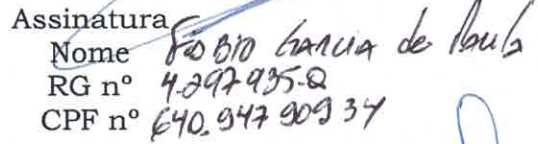 Assinatura
Nome Fabio Garcia de Paula
RG nº 4.297.935-2
CPF nº 640.947 909 34